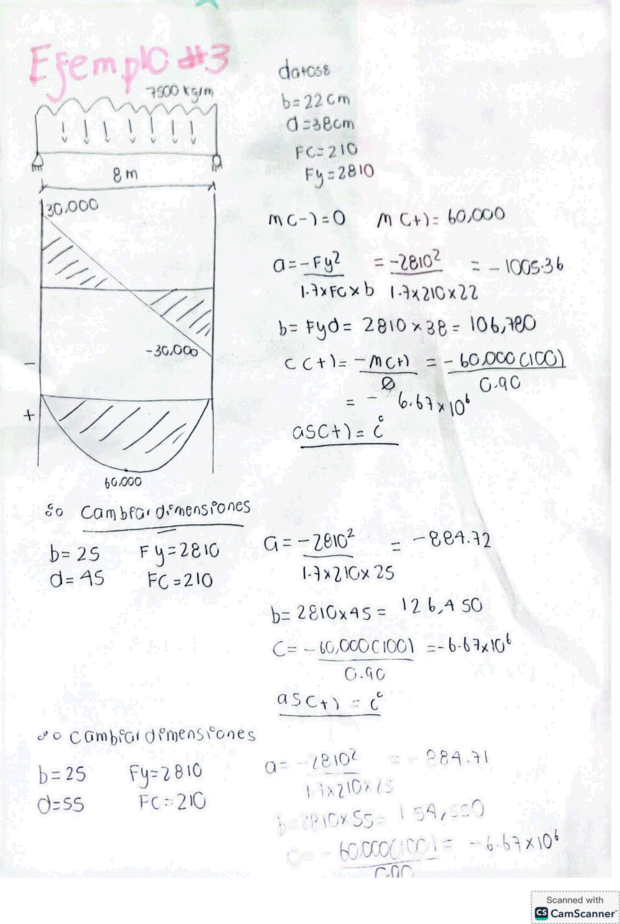 Ejemplo #3
7500 kg/m
8m
30,000
-30,000
-
+
60.000
datos:
b=22cm
d=38cm
FC=210
Fy=2810
M(-)=0 M(+)=60,000
a=-Fy² / 1.7xFCxb = -2810² / 1.7x210x22 = -1005.36
b=Fyd= 2810x38= 106,780
C(+)= -M(+) / Ø = -60,000(100) / 0.90
= -6.67x10⁶
as(+)= i
∴ Cambiar dimensiones
b=25 Fy=2810
d=45 FC=210
a= -2810² / 1.7x210x25 = -884.72
b=2810x45= 126,450
C= -60,000(100) / 0.90 = -6.67x10⁶
as(+) = i
∴ Cambiar dimensiones
b=25 Fy=2810
d=55 FC=210
a= -2810² / 1.7x210x25 = -884.71
b=2810x55= 154,550
C= -60,000(100) / 0.90 = -6.67x10⁶
Scanned with
CS CamScanner